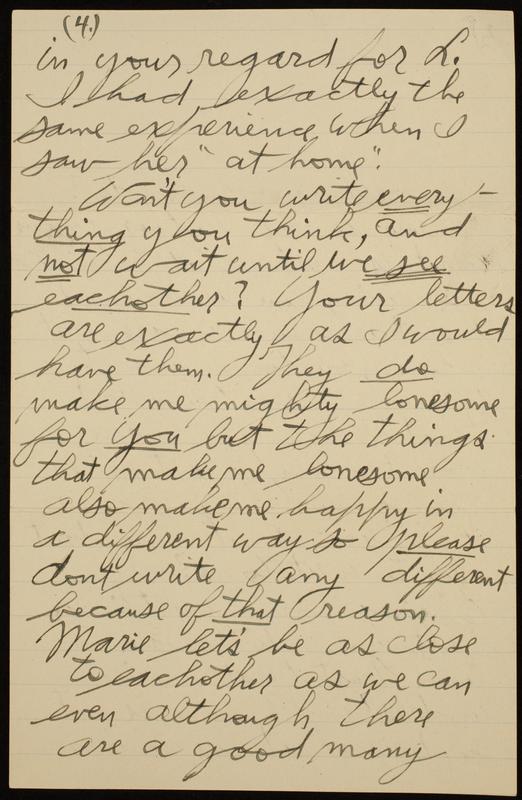 (4.)
in your regard for L.
I had exactly the
same experience when I
saw her "at home".
Won't you write every-
thing you think, and
not wait until we see
eachother? Your letters
are exactly as I would
have them. They do
make me mighty lonesome
for you but the things
that make me lonesome
also make me happy in
a different way so please
dont write any different
because of that reason.
Marie let's be as close
to eachother as we can
even although there
are a good many